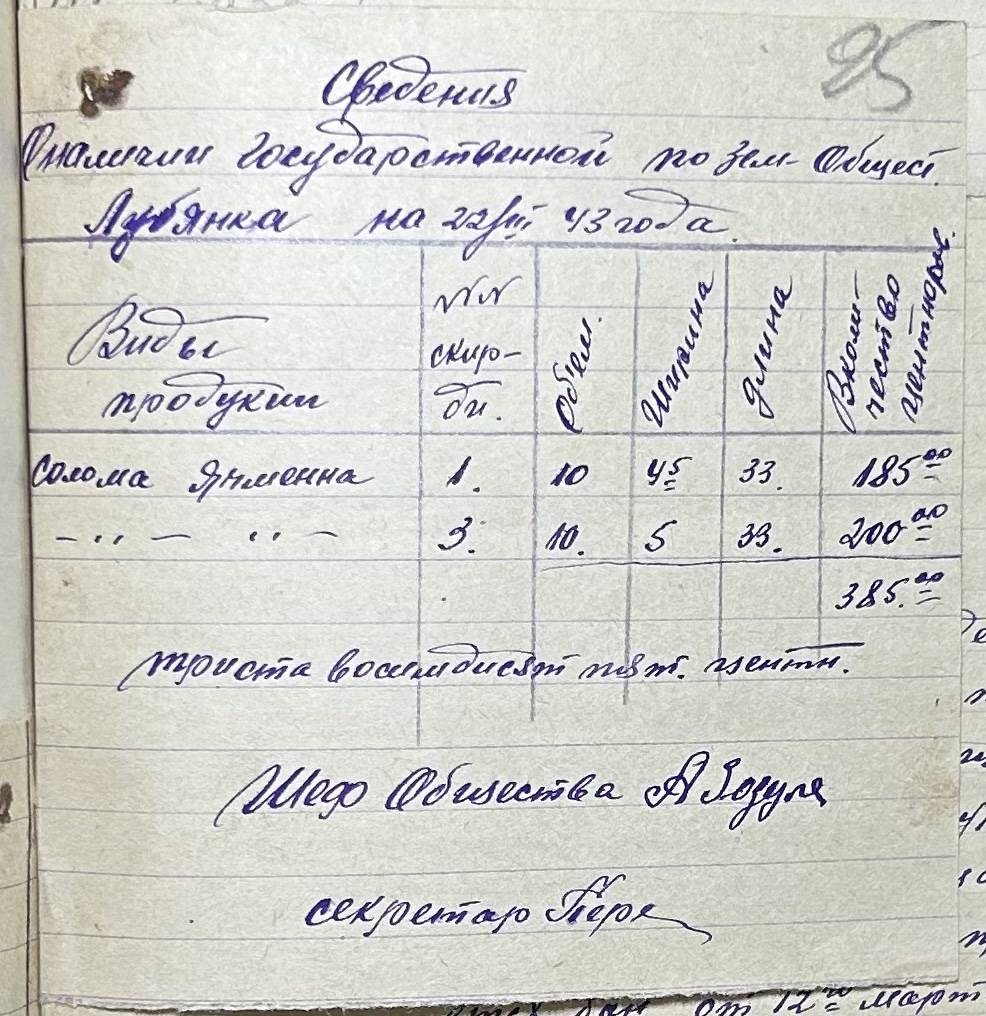 95
Сведения
О наличии государственной по зем- Общест.
Лубянка на 22/III 43 года.
Виды продукции | №№ скир- ди. | Об'ем. | Ширина | длина | В коли- чество центнеров.
солома Ячменна | 1. | 10 | 4 5 | 33. | 185 00
- " - " - | 3. | 10. | 5 | 33. | 200 00
385. 00
триста восимдисят пят. центн.
Шеф Общества А Зозуля
секретар
от 12 го март